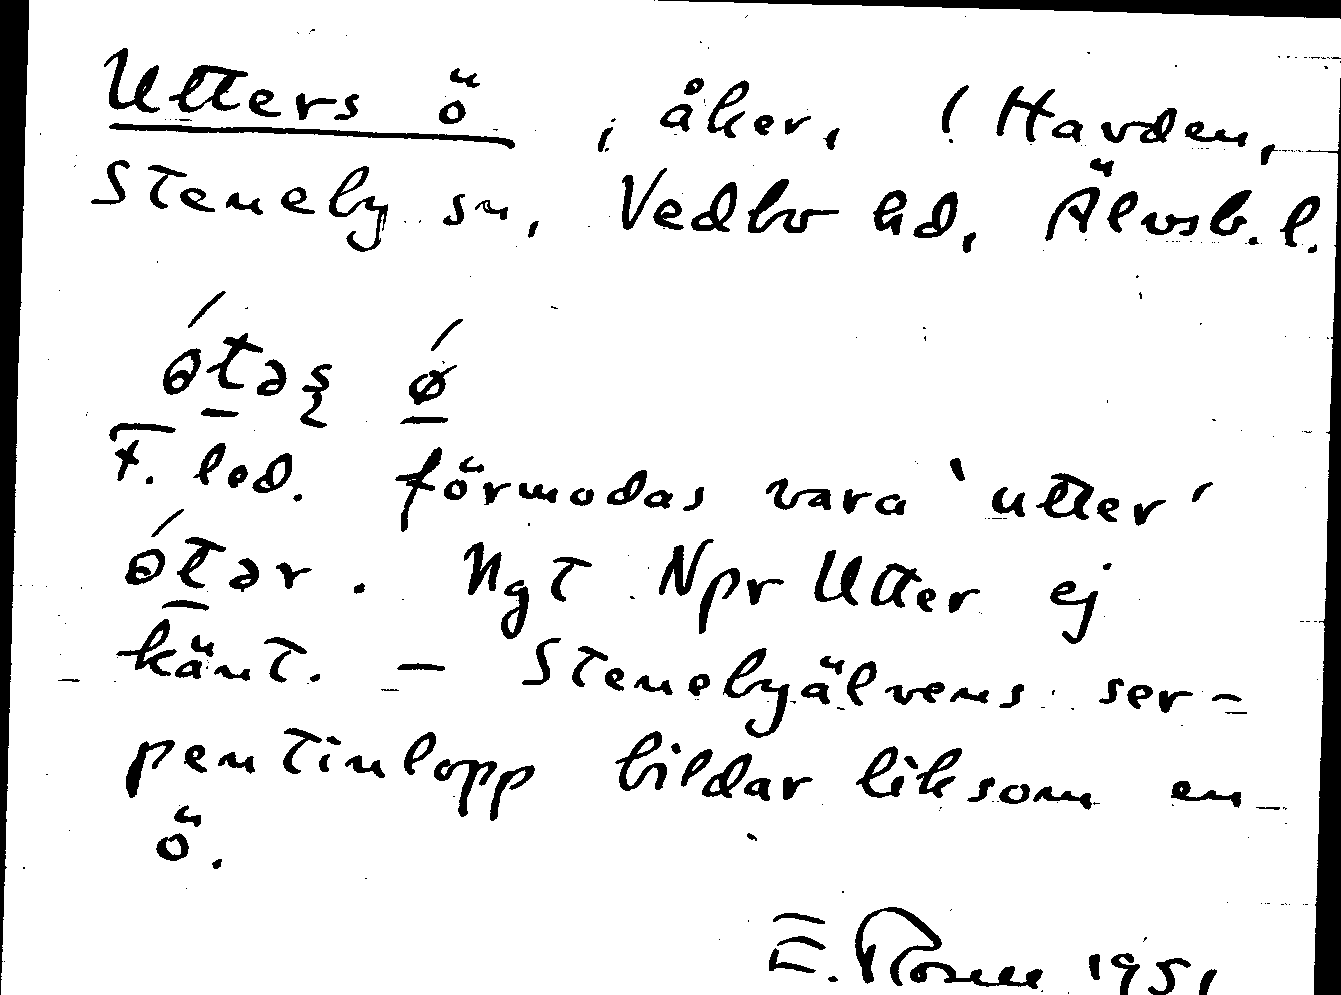 Utters ö, åker, (Havden,
Steneby sn, Vedbo hd, Älvsb. l.
ótəʂ ǿ
F. led. förmodas vara 'utter'
ótər. Ngt Npr Utter ej
känt. – Stenebyälvens ser-
pentinlopp bildar liksom en
ö.
E. Rosell 1951